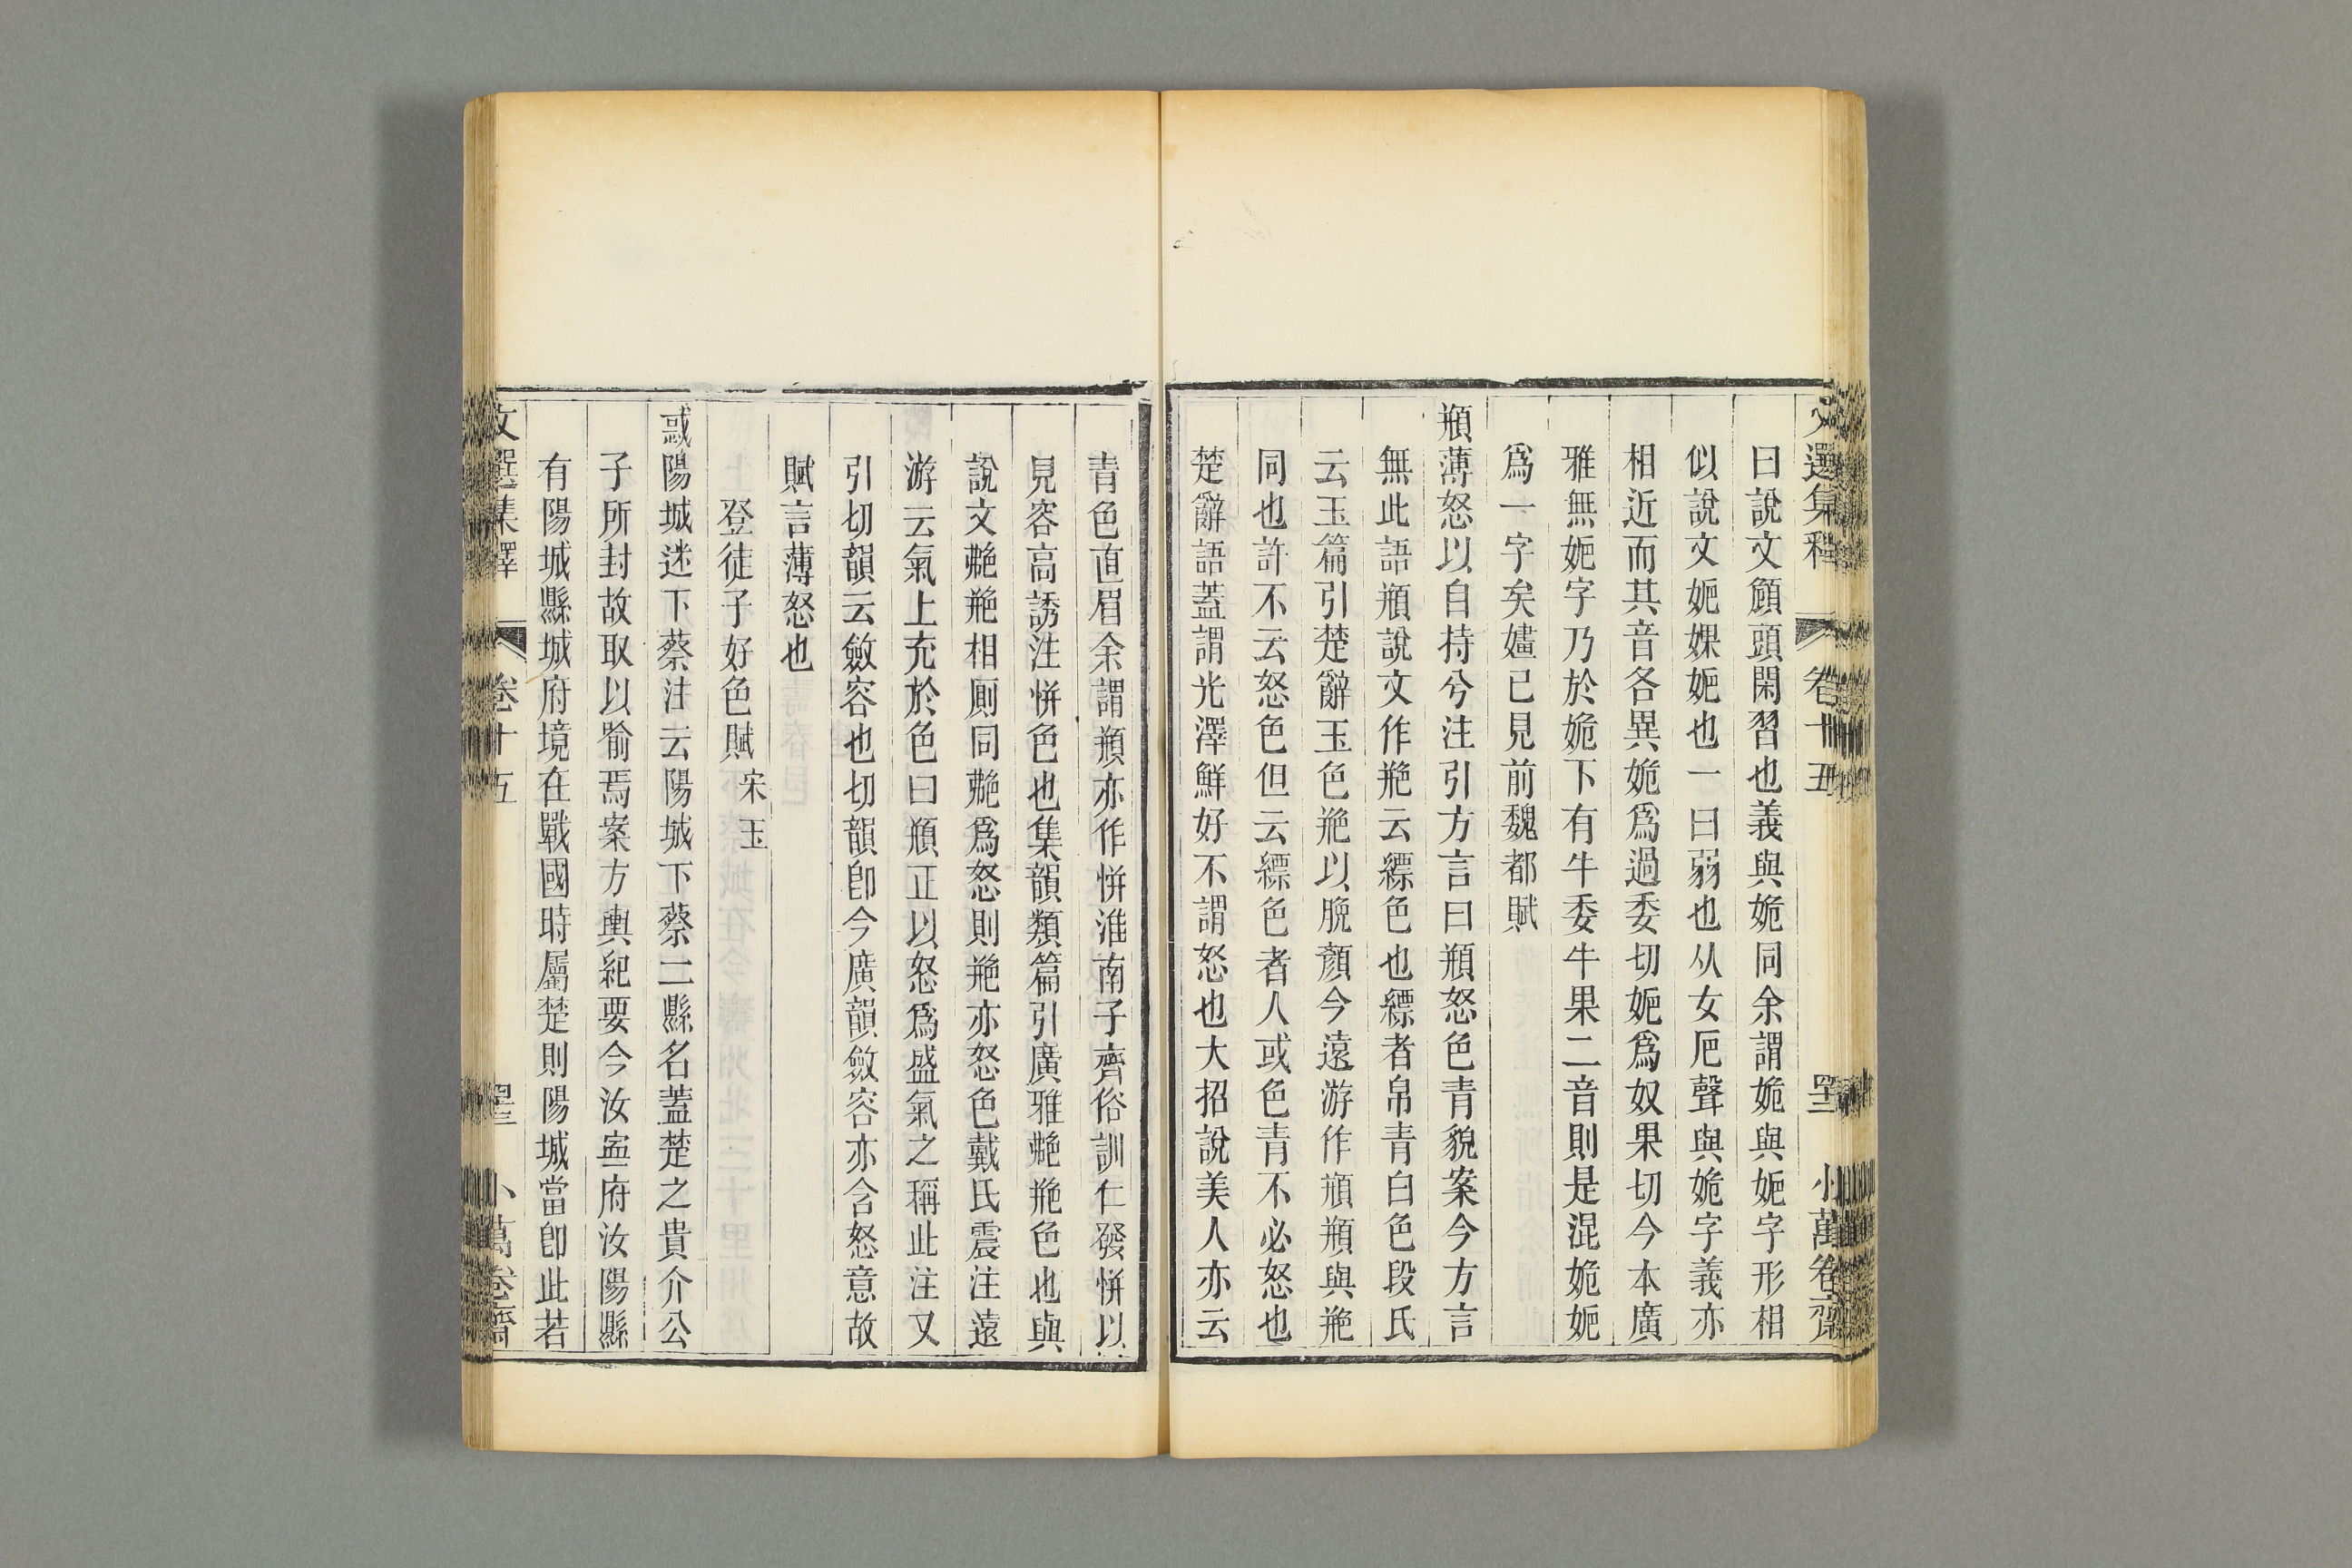 文選集釋 卷十五 小萬卷齋
曰說文頠頭閑習也義與姽同余謂姽與婗字形相
似說文婐婗也一曰弱也从女厄聲與姽字義亦
相近而其音各異姽爲過委切婗爲奴果切今本廣
雅無字乃於姽下有牛委牛果二音則是混姽
爲一字矣嫿已見前魏都賦
頩薄怒以自持兮注引方言曰頩怒色青貌案今方言
無此語頩說文作艵云縹色也縹者帛青白色段氏
云玉篇引楚辭玉色艵以脕顏今遠游作頩頩與艵
同也許不云怒色但云縹色者人或色青不必怒也
楚辭語蓋謂光澤鮮好不謂怒也大招說美人亦云
青色直眉余謂頩亦作恲淮南子齊俗訓仁發恲以
見容高誘注恲色也集韻類篇引廣雅艴艵色也與
說文艴艵相廁同艴爲怒則艵亦怒色戴氏震注遠
游云氣上充於色曰頩正以怒爲盛氣之稱此注又
引切韻云斂容也切韻卽今廣韻斂容亦含怒意故
賦言薄怒也
登徒子好色賦 宋玉
惑陽城迷下蔡注云陽城下蔡二縣名蓋楚之貴介公
子所封故取以喻焉案方輿紀要今汝寍府汝陽縣
有陽城縣城府境在戰國時屬楚則陽城當卽此若
文選集釋 卷十五 小萬卷齋